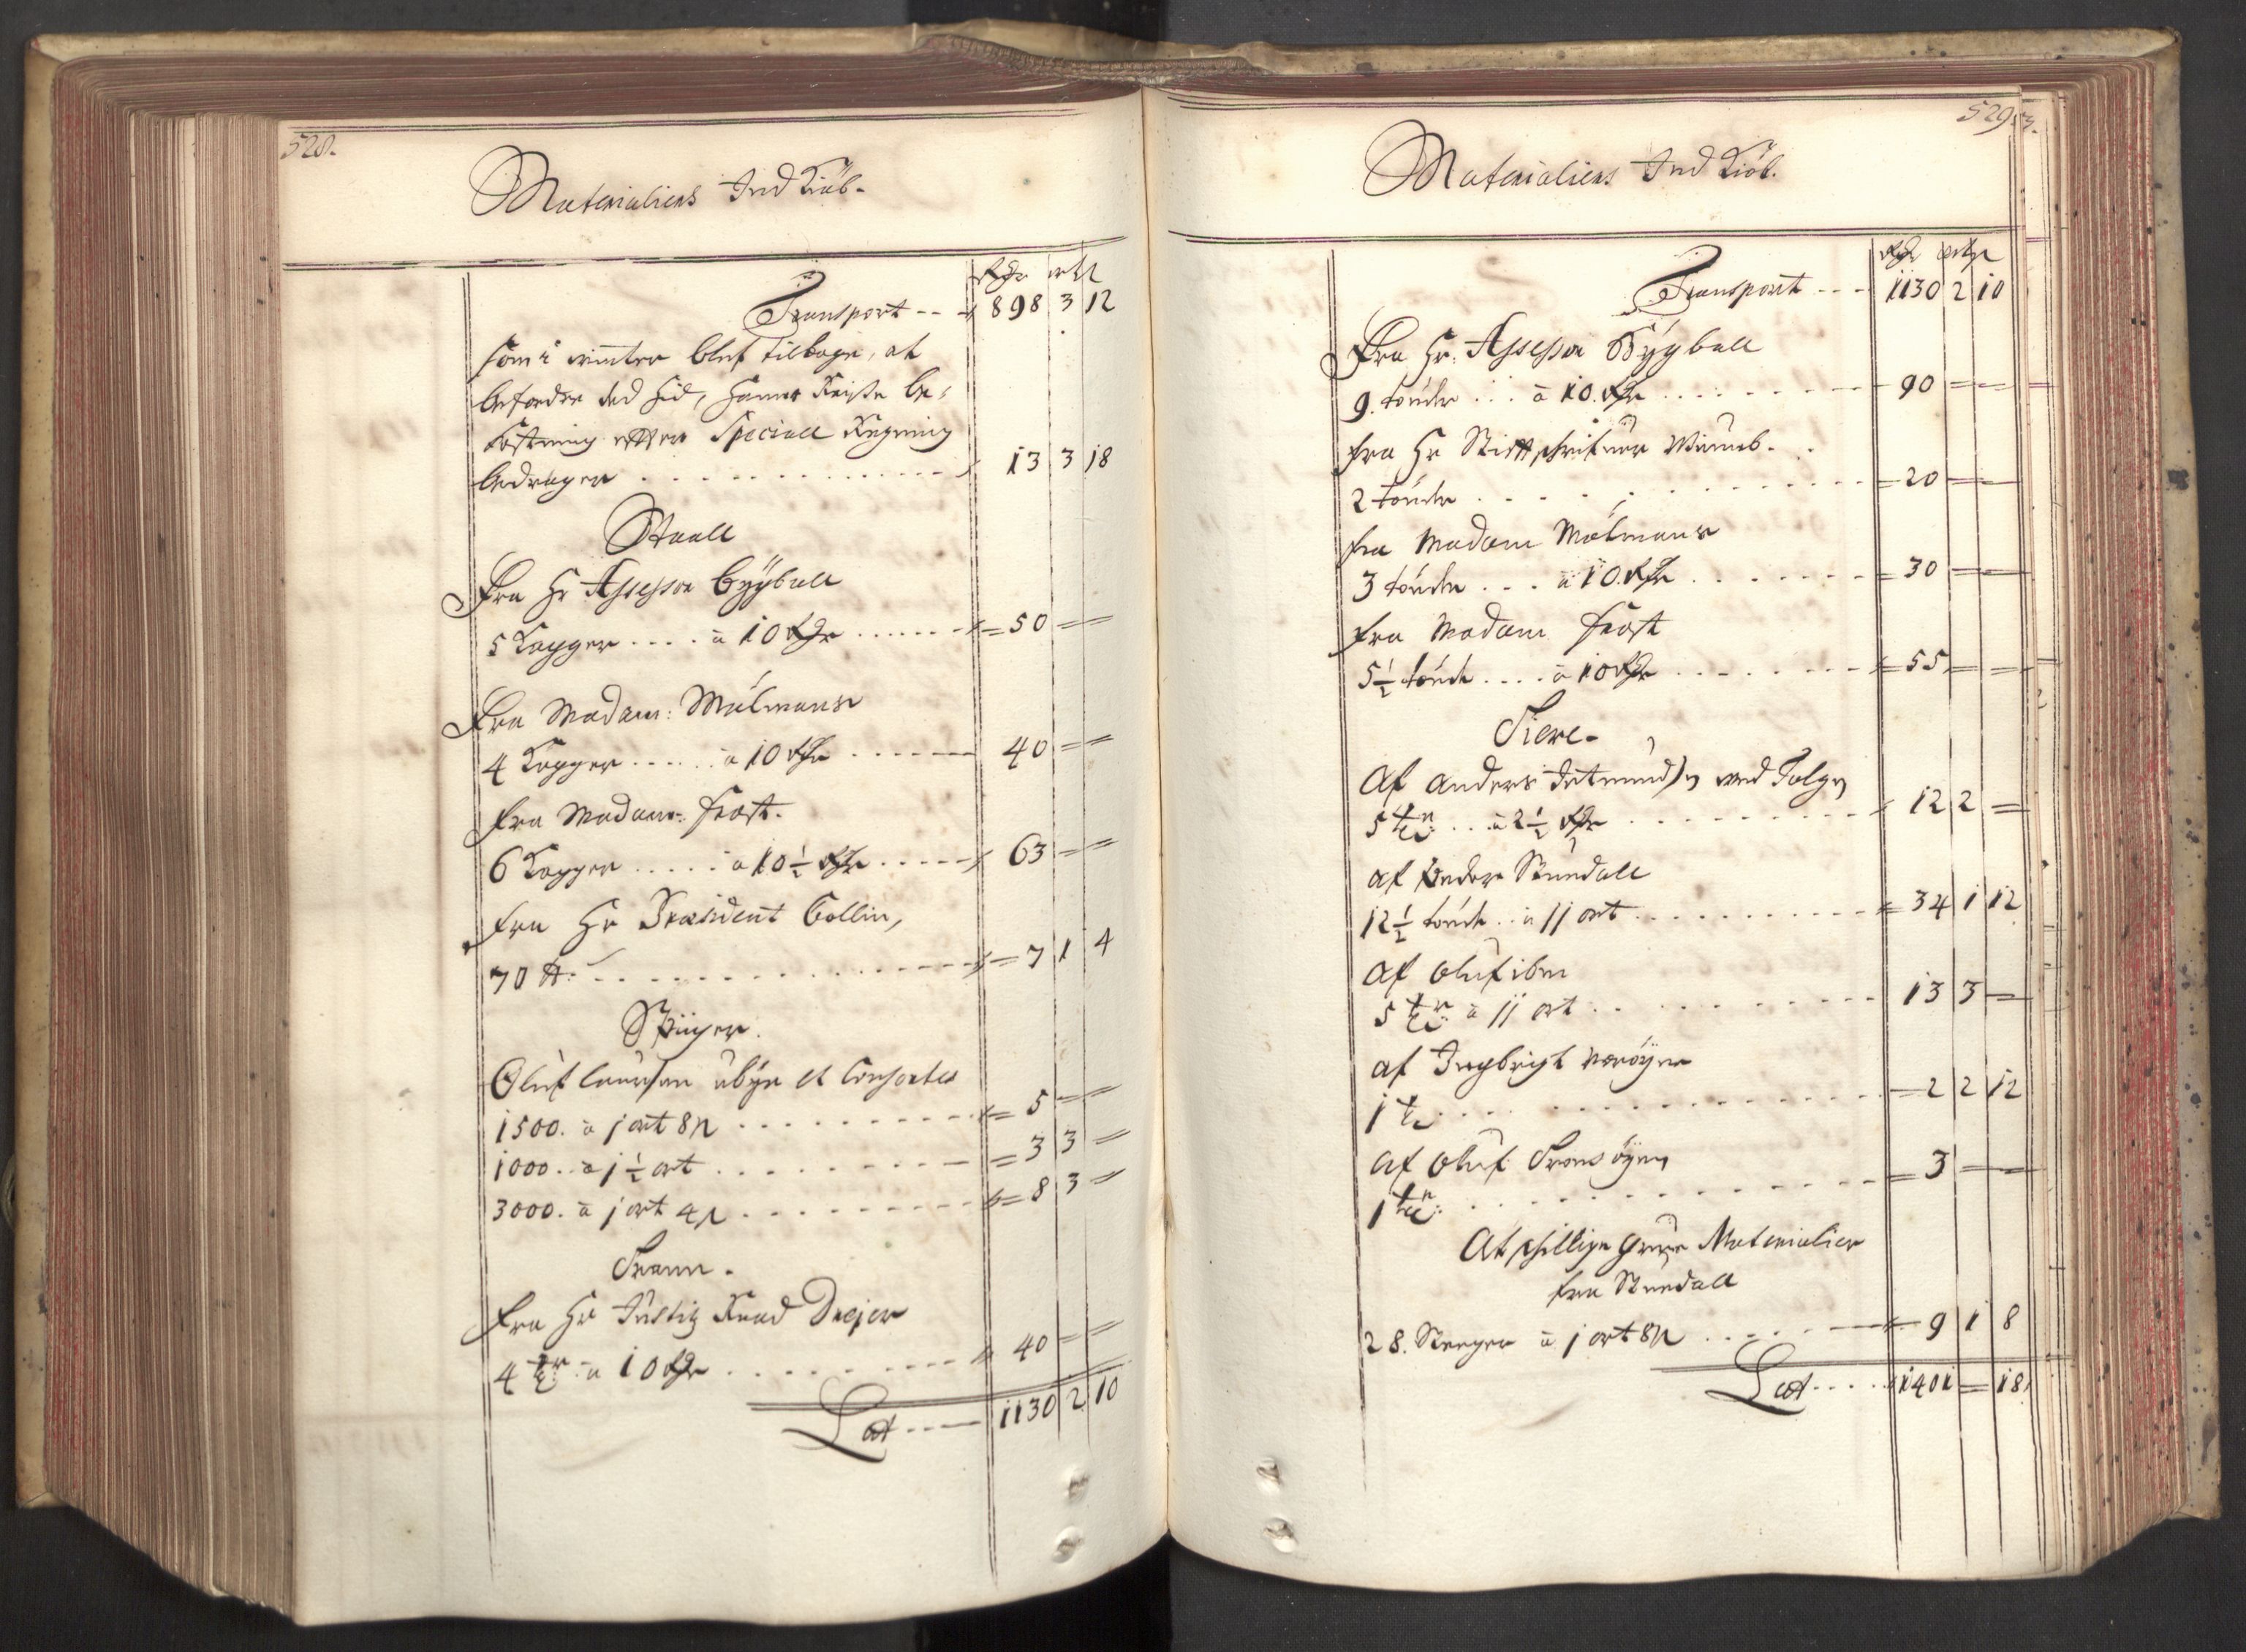 528.
Materialiers Ind Kiöb-
Rdr ort ß
Transport - - 898 3 12
som i vinter blef tilbage, at
befordre ned hid, hannes Reise be-
kostning efter Speciale Regning
bedrager . . . . 13 3 18
Staall
Fra Hr Assessor Bÿgball
5 Kagger .... à 10 Rdr ...... 50 = =
Fra Madam: Mölmans
4 Kagger ..... à 10 Rdr ...... 40 = =
Fra Madam: Frost.
6 Kagger ..... à 10 1/2 Rdr ..... 63 = =
Fra Hr Præsident Collin,
70 ℔: - - - - 7 1 4
Spiiger.
Oluf et Consortes
1500. à 1 ort 8 ß . . . . = 5 = =
1000. à 1 1/2 ort . . . . = 3 3 =
3000. à 1 ort 4 ß . . . . = 8 3 =
Trann.
Fra Hr Justitz Raad Drejer
4 tr à 10 Rdr . . . . 40 = =
Lat ---- 1130 2 10
529.
Materialiers Ind Kiöb.
Rdr ort ß
Transport - - - 1130 2 10
Fra Hr: Assessor Bÿgball
9. tönder ... à 10. Rdr . . . . 90 = =
Fra Hr
2 tönder . . . . = 20 = =
Fra Madam Mölmans
3 tönder . . . à 10 Rdr . . . . = 30 = =
Fra Madam Frost
5 1/2 tönde .... à 10 Rdr . . . . = 55 = =
Tiere-
Af Anders ved Tolgen
5 tr: .. à 2 1/2 Rdr . . . . 12 2 =
af Peder Stuedall
12 1/2 tönde .. à 11 ort . . . . = 34 1 12
Af Oluf ibm
5 tr: à 11 ort . . . . 13 3 =
af Ingbrigt
1 t . . . . = 2 2 12
af Oluf
1 tr: . . . . = 3 = =
Atskillige Materialier
fra Stuedall
28. Stenger à 1 ort 8 ß . . . . 9 1 8
Lat .... 1401 = 18